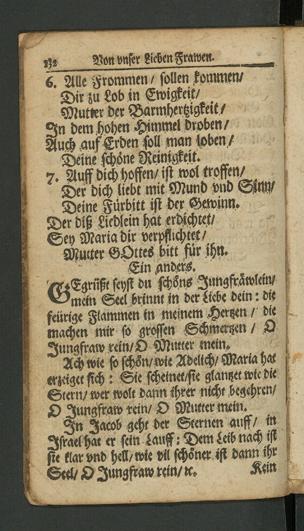 132 Von vnser Lieben Frawen.
6. Alle Frommen / sollen kommen /
Dir zu Lob in Ewigkeit /
Mutter der Barmhertzigkeit /
In dem hohen Himmel droben /
Auch auf Erden soll man loben /
Deine schöne Reinigkeit.
7. Auff dich hoffen / ist wol troffen /
Der dich liebt mit Mund vnd Sinn /
Deine Fürbitt ist der Gewinn.
Der diß Liedlein hat erdichtet /
Sey Maria dir verpflichtet /
Mutter GOttes bitt für ihn.
Ein anders.
GEgrüßt seyst du schöns Jungfräwlein /
mein Seel brinnt in der Liebe dein : die
feürige Flammen in meinem Hertzen / die
machen mir so grossen Schmertzen / O
Jungfraw rein / O Mutter mein.
Ach wie so schön / wie Adelich / Maria hat
erzeiget sich : Sie scheinet / sie glantzet wie die
Stern / wer wolt dann ihrer nicht begehren /
O Jungfraw rein / O Mutter mein.
In Jacob geht der Sternen auff / in
Israel hat er sein Lauff : Dem Leib nach ist
sie klar vnd hell / wie vil schöner ist dann ihr
Seel / O Jungfraw rein / ꝛc. Kein